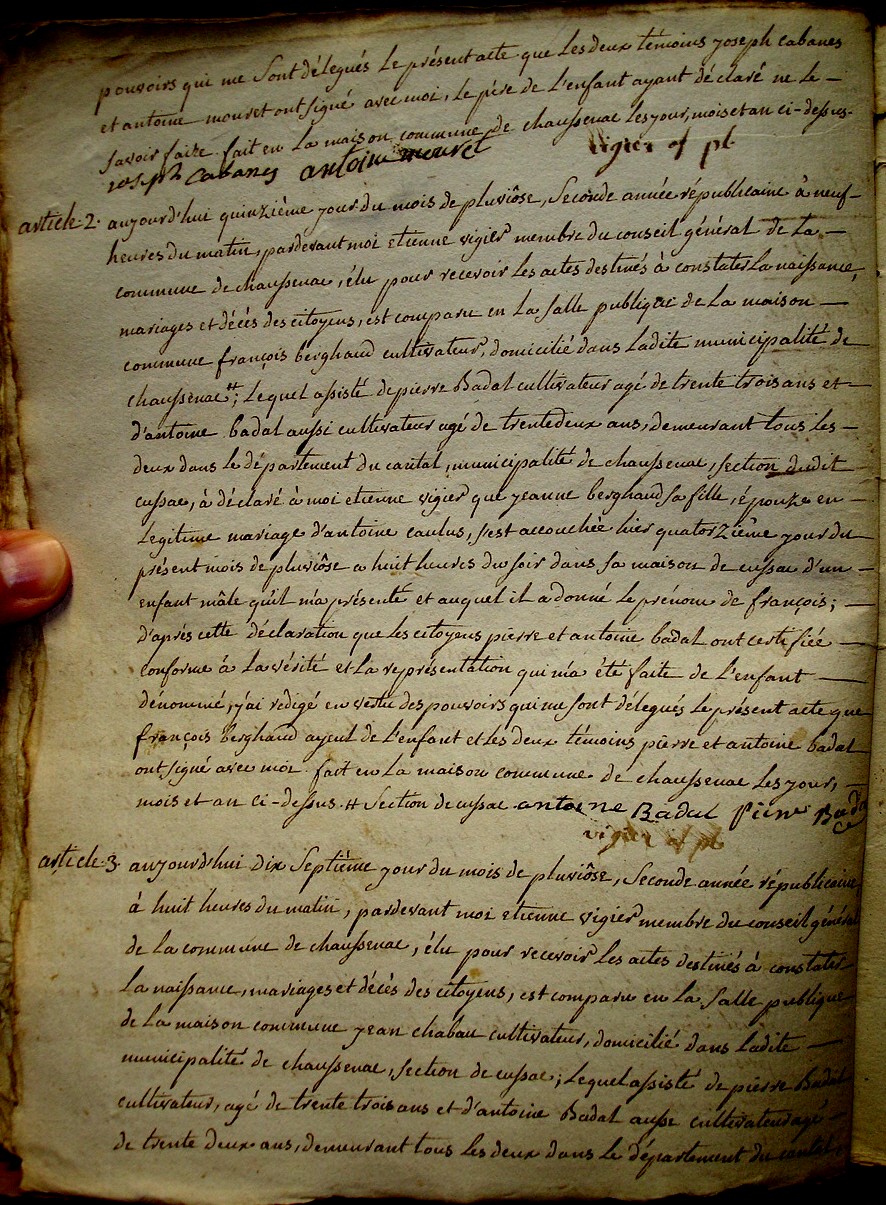 pouvoirs qui me sont délegués le présent acte que les deux témoins joseph cabanes
et antoine mouret ont signé avec moi, le père de l'enfant ayant déclaré ne le —
savoir faire. fait en la maison commune de chaussenac les jour, mois et an ci-dessus.
joseph cabanes antoine mouret vigier of pl
article 2. aujourd'hui quinzième jour du mois de pluviôse, seconde année républicaine à neuf —
heures du matin, pardevant moi etienne vigier membre du conseil général de la —
commune de chaussenac, élu pour recevoir les actes destinés à constater la naissance,
mariages et décès des citoyens, est comparu en la salle publique de la maison —
commune françois berghaud cultivateur, domicilié dans ladite municipalité de
chaussenac #; lequel assisté de pierre Badal cultivateur agé de trente trois ans et —
d'antoine badal aussi cultivateur agé de trente deux ans, demeurant tous les —
deux dans le département du cantal, municipalité de chaussenac, section dudit
cussac, à déclaré à moi etienne vigier que jeanne berghaud sa fille, épouze en —
legitime mariage d'antoine caulus, s'est accouchée hier quatorzième jour du
présent mois de pluviôse a huit heures du soir dans sa maison de cussac d'un —
enfant mâle qu'il m'a présenté et auquel il a donné le prénom de françois; —
d'après cette déclaration que les citoyens pierre et antoine badal ont certifiée —
conforme à la vérité et la représentation qui m'a été faite de l'enfant —
dénommé, j'ai redigé en vertu des pouvoirs qui me sont délegués le présent acte que
françois berghaud ayeul de l'enfant et les deux témoins pierre et antoine badal
ont signé avec moi. fait en la maison commune de chaussenac les jour, —
mois et an ci-dessus. # Section de cussac antoine Badal pierre Badal
vigier of pl
article 3. aujourd'hui dix septième jour du mois de pluviôse, seconde année républicaine
à huit heures du matin, pardevant moi etienne vigier membre du conseil général
de la commune de chaussenac, élu pour recevoir les actes destinés à constater
la naissance, mariages et décès des citoyens, est comparu en la salle publique
de la maison commune jean chabau cultivateur, domicilié dans ladite —
municipalité de chaussenac, section de cussac; lequel assisté de pierre Badal
cultivateur, agé de trente trois ans et d'antoine Badal aussi cultivateur agé —
de trente deux ans, demeurant tous les deux dans le département du cantal,